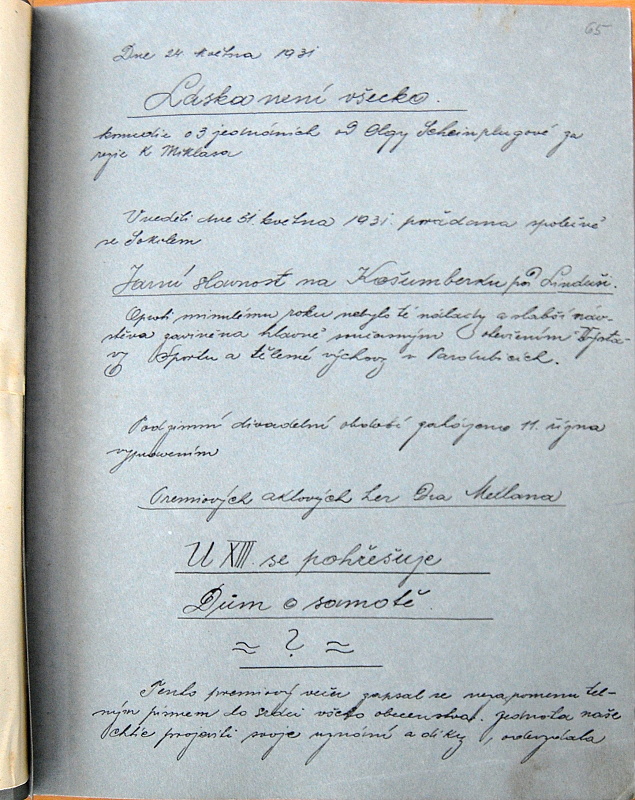 65
Dne 24 května 1931
Láska není všecko.
komedie o 3 jednáních od Olgy Scheinpflugové za
režie K Miklasa
V neděli dne 31. května 1931. pořádána společně
se Sokolem
Jarní slavnost na Košumberku pod Linduší.
Oproti minulému roku nebylo té nálady a slabší náv-
štěva zaviněna hlavně současným otevřením Výsta-
vy Sportu a tělesné výchovy v Pardubicích.
Podzimní divadelní období zahájeno 11. října
vypravením
Premiových aktových her Dra Mellana
U XIII. se pohřešuje
Dům o samotě.
≈ ? ≈
Tento premiový večer zapsal se nezapomenutel-
ným písmem do srdcí všeho obecenstva. Jednota naše
chtíc projeviti svoje uznání a díky, odevzdala